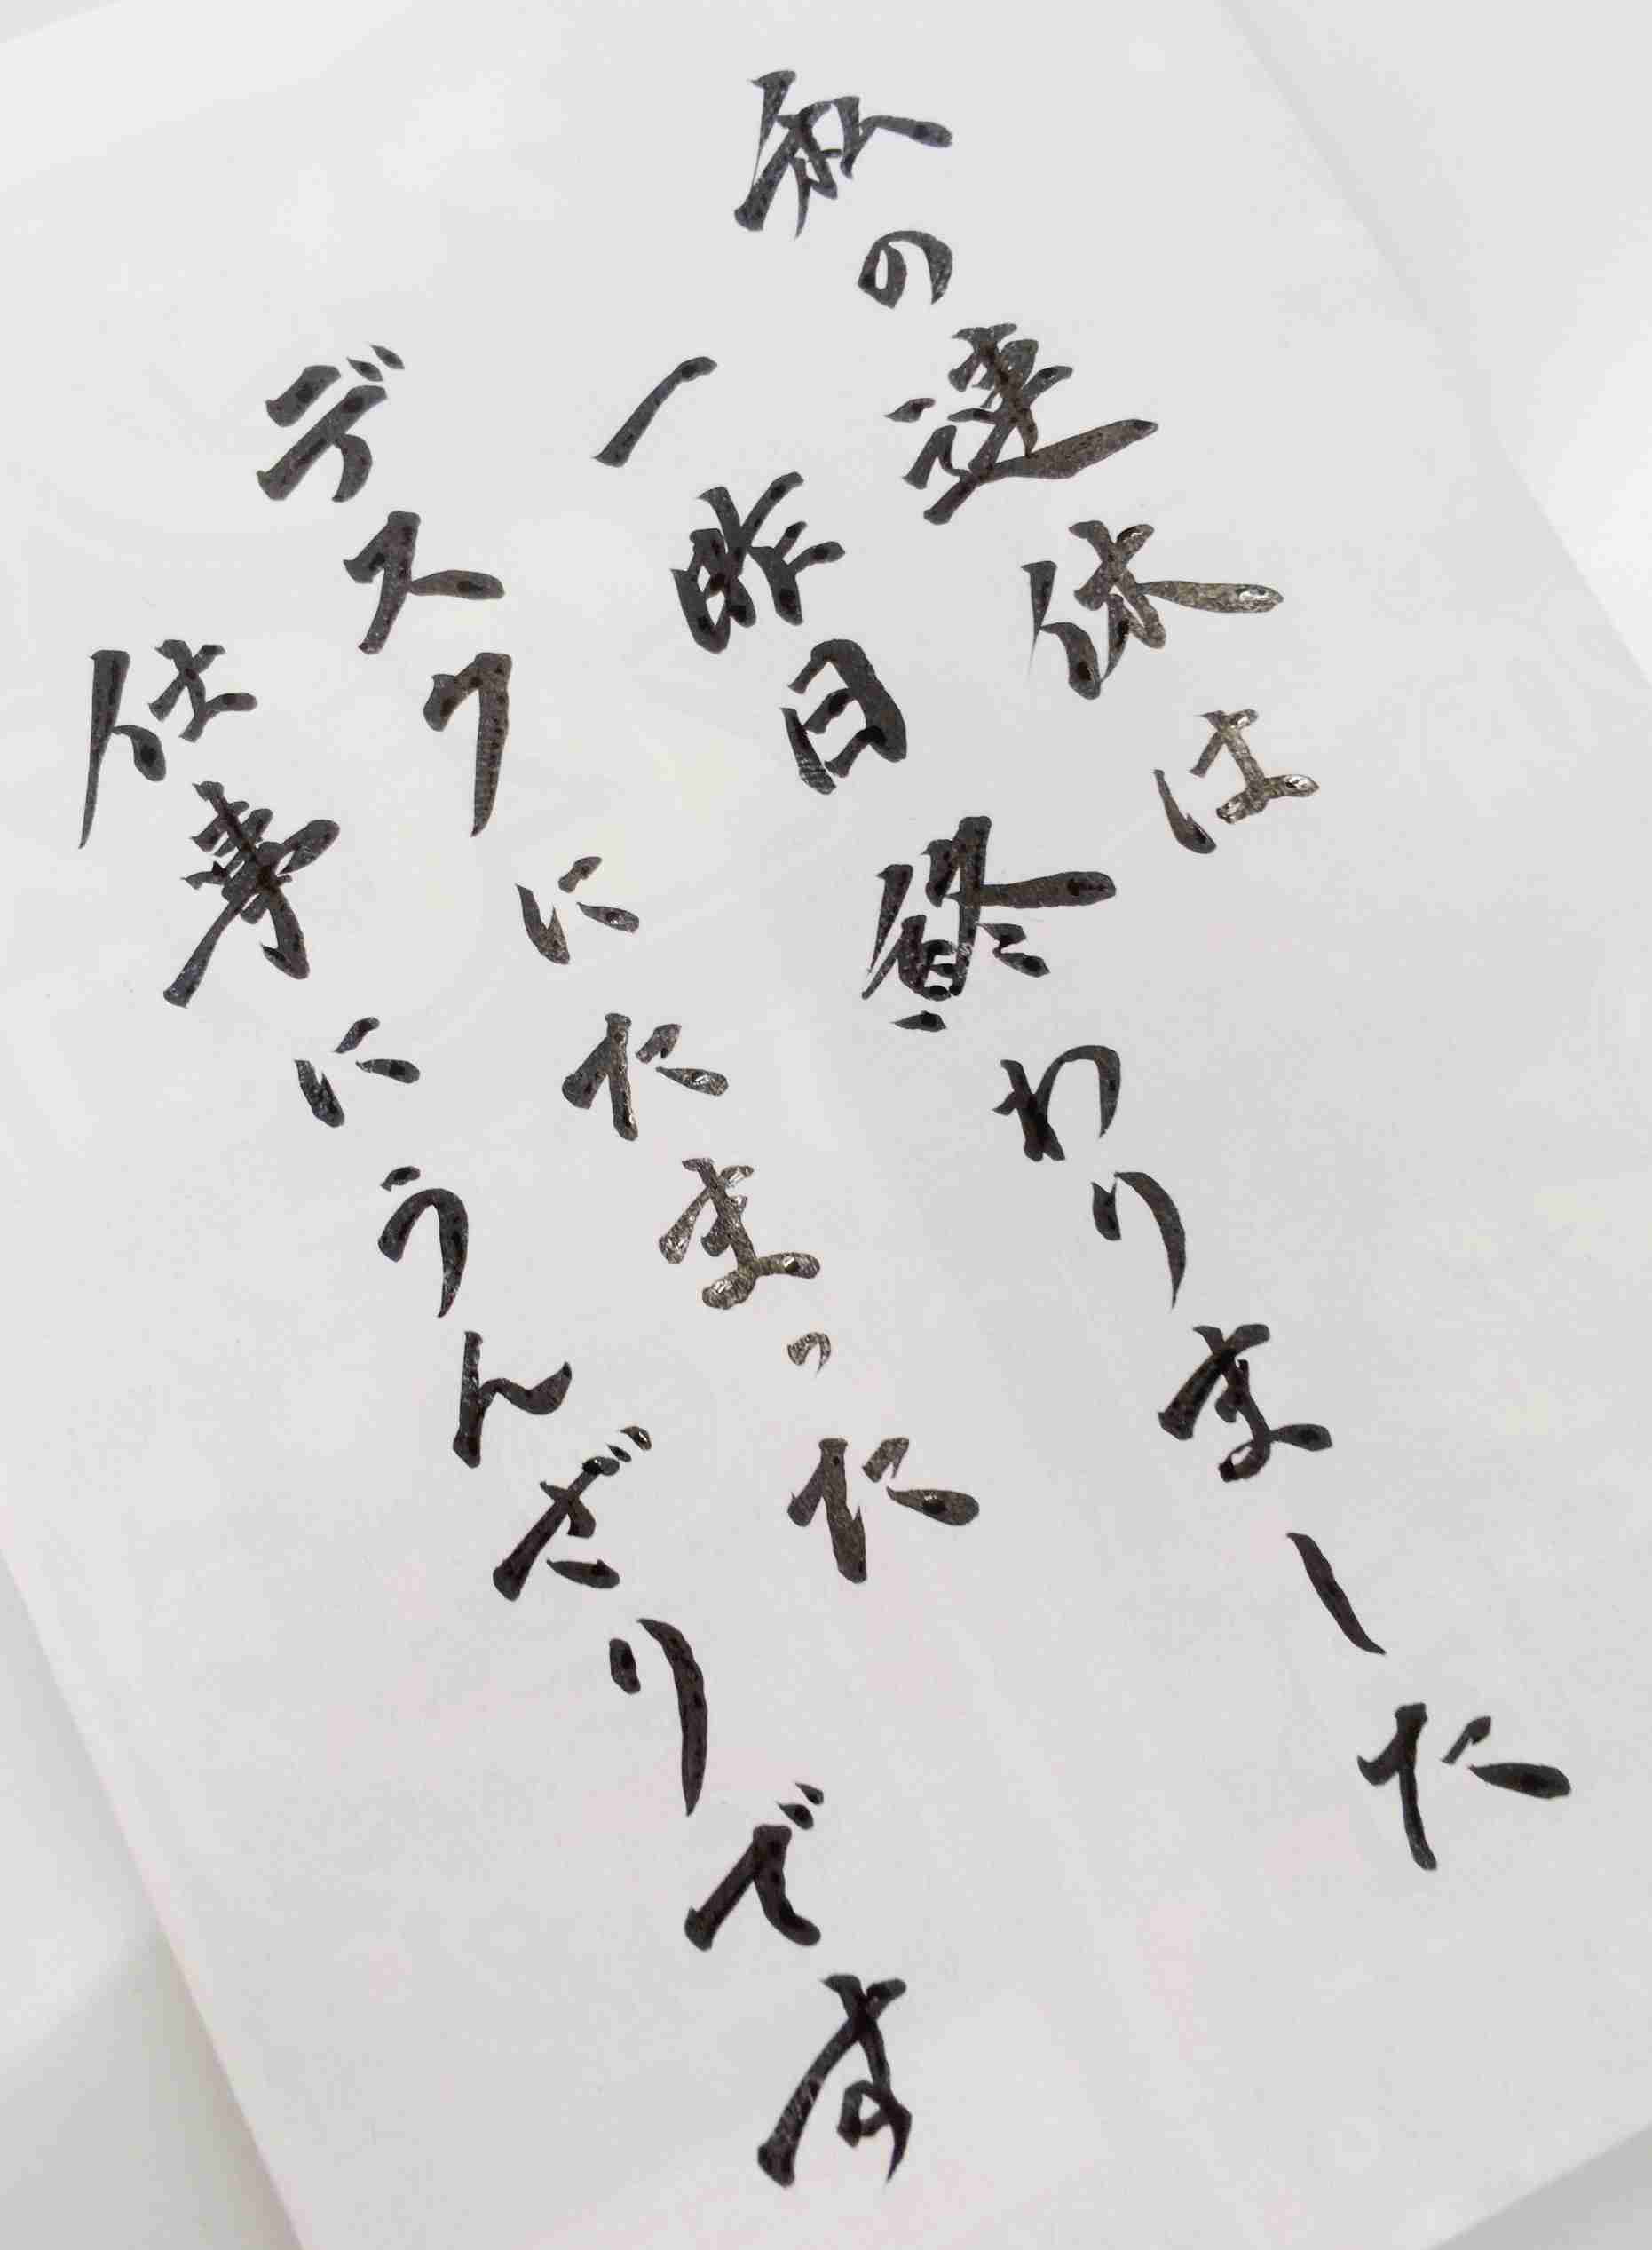 秋の連休は
一昨日終わりました
デスクにたまった
仕事にうんざりです